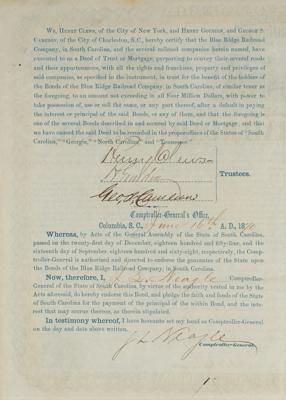 WE, HENRY CLEWS, of the City of New York, and HENRY GOURDIN, and GEORGE S.
CAMERON, of the City of Charleston, S.C., hereby certify that the Blue Ridge Railroad
Company, in South Carolina, and the several railroad companies herein named, have
executed to us a Deed of Trust or Mortgage, purporting to convey their several roads
and their appurtenances, with all the rights and franchise, property and privileges of
said companies, as specified in the instrument, in trust for the benefit of the holders
of the Bonds of the Blue Ridge Railroad Company, in South Carolina, of similar tenor as
the foregoing, to an amount not exceeding in all Four Million Dollars, with power to
take possession of, use or sell the same, or any part thereof, after a default in paying
the interest or principal of the said Bonds, or any of them, and that the foregoing is
one of the several Bonds described in and secured by said Deed or Mortgage; and that
we have caused the said Deed to be recorded in the proper offices of the States of "South
Carolina," "Georgia," "North Carolina," and "Tennessee."
Henry Clews
H Gourdin
Trustees.
Geo. S. Cameron
Comptroller-General's Office,
Columbia, S. C., 16th A. D., 18
Whereas, by Acts of the General Assembly of the State of South Carolina,
passed on the twenty-first day of December, eighteen hundred and fifty-four, and the
sixteenth day of September, eighteen hundred and sixty-eight, respectively, the Comp-
troller-General is authorized and directed to endorse the guarantee of the State upon
the Bonds of the Blue Ridge Railroad Company, in South Carolina.
Now, therefore, I, J. L. Neagle Comptroller-
General of the State of South Carolina, by virtue of the authority vested in me by the
Acts aforesaid, do hereby endorse this Bond, and pledge the faith and funds of the State
of South Carolina for the payment of the principal of the within Bond, and the inter-
est that may accrue thereon, as therein stipulated.
In testimony whereof, I have hereunto set my hand as Comptroller-General
on the day and date above written.
J L Neagle
Comptroller-General.